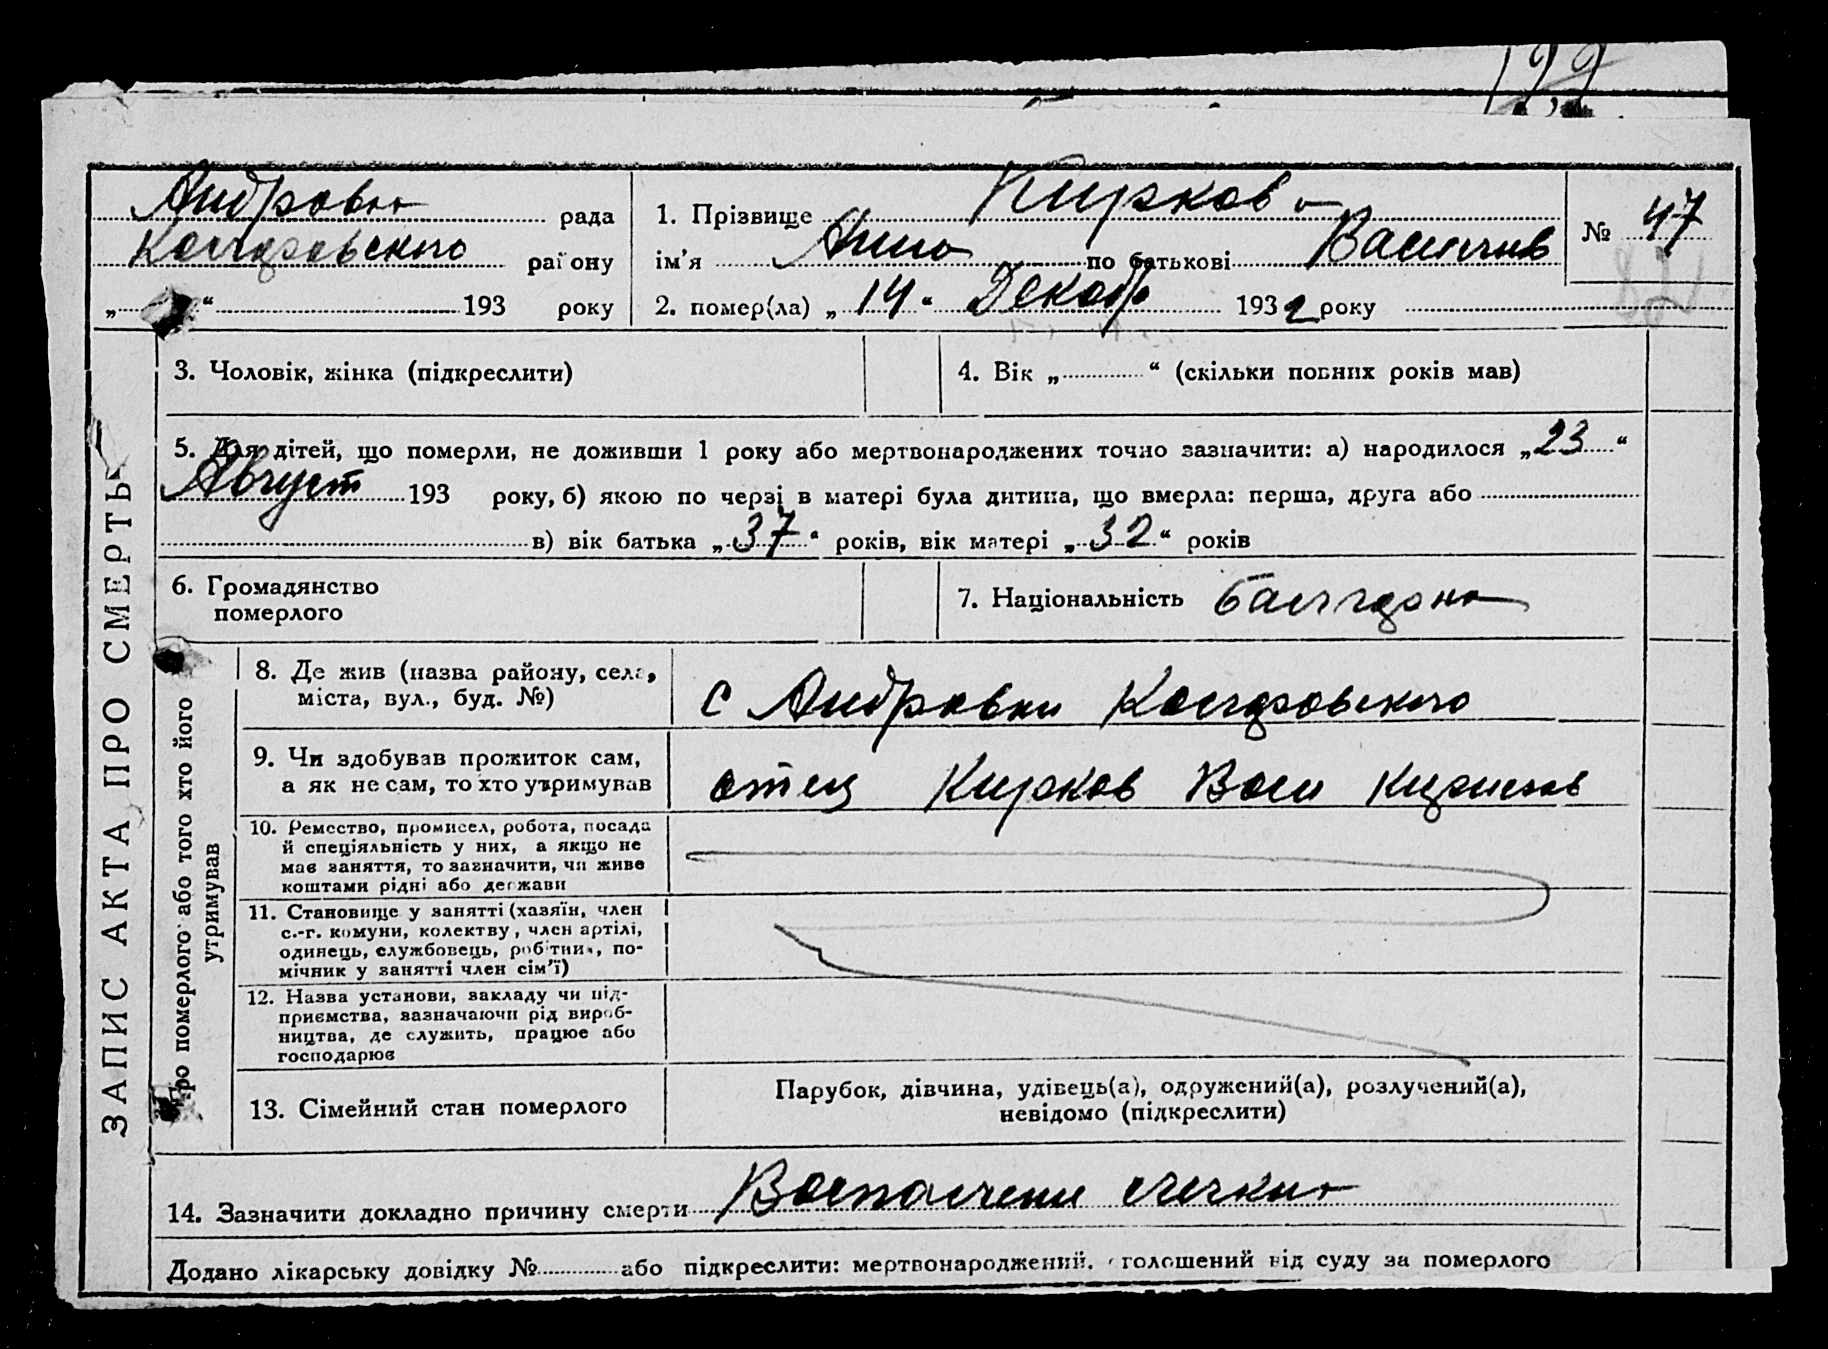 122
Андровка рада
Коларовского району
„ “ 193 року
1. Прізвище Кирков а
ім’я Анна по батькові Васильев
2. помер(ла) „ 14 “ Декабр 1932 року
№ 47
3. Чоловік, жінка (підкреслити)
4. Вік „ “ (скільки повних років мав)
5. Для дітей, що померли, не доживши 1 року або мертвонароджених точно зазначити: а) народилося „ 23 “
Август 193 року, б) якою по черзі в матері була дитина, що вмерла: перша, друга або
в) вік батька „ 37 “ років, вік матері „ 32 “ років
6. Громадянство
померлого
7. Національність болгарка
8. Де жив (назва району, села,
міста, вул., буд. №)
с Андровки Коларовского
9. Чи здобував прожиток сам,
а як не сам, то хто утримував
отец Кирков Васи
10. Ремество, промисел, робота, посада
й спеціяльність у них, а якщо не
має заняття, то зазначити, чи живе
коштами рідні або держави
11. Становище у занятті (хазяїн, член
с.-г. комуни, колектву, член артілі,
одинець, службовець, робітник, по-
мічник у занятті член сім’ї)
12. Назва установи, закладу чи під-
приємства, зазначаючи рід вироб-
ництва, де служить, працює або
господарює
13. Сімейний стан померлого
Парубок, дівчина, удівець(а), одружений(а), розлучений(а),
невідомо (підкреслити)
14. Зазначити докладно причину смерти
Додано лікарську довідку № або підкреслити: мертвонароджений, оголошений від суду за померлого
ЗАПИС АКТА ПРО СМЕРТЬ
Про померлого або того хто його
утримував